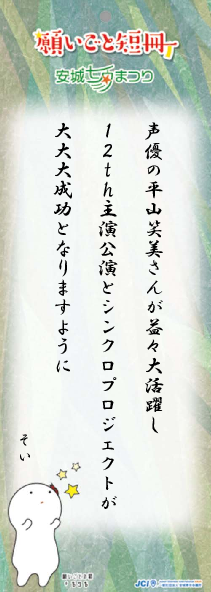 願いごと短冊
安城七夕まつり
声優の平山笑美さんが益々大活躍し
12th主演公演とシンクロプロジェクトが
大大大成功となりますように
そい
JCI